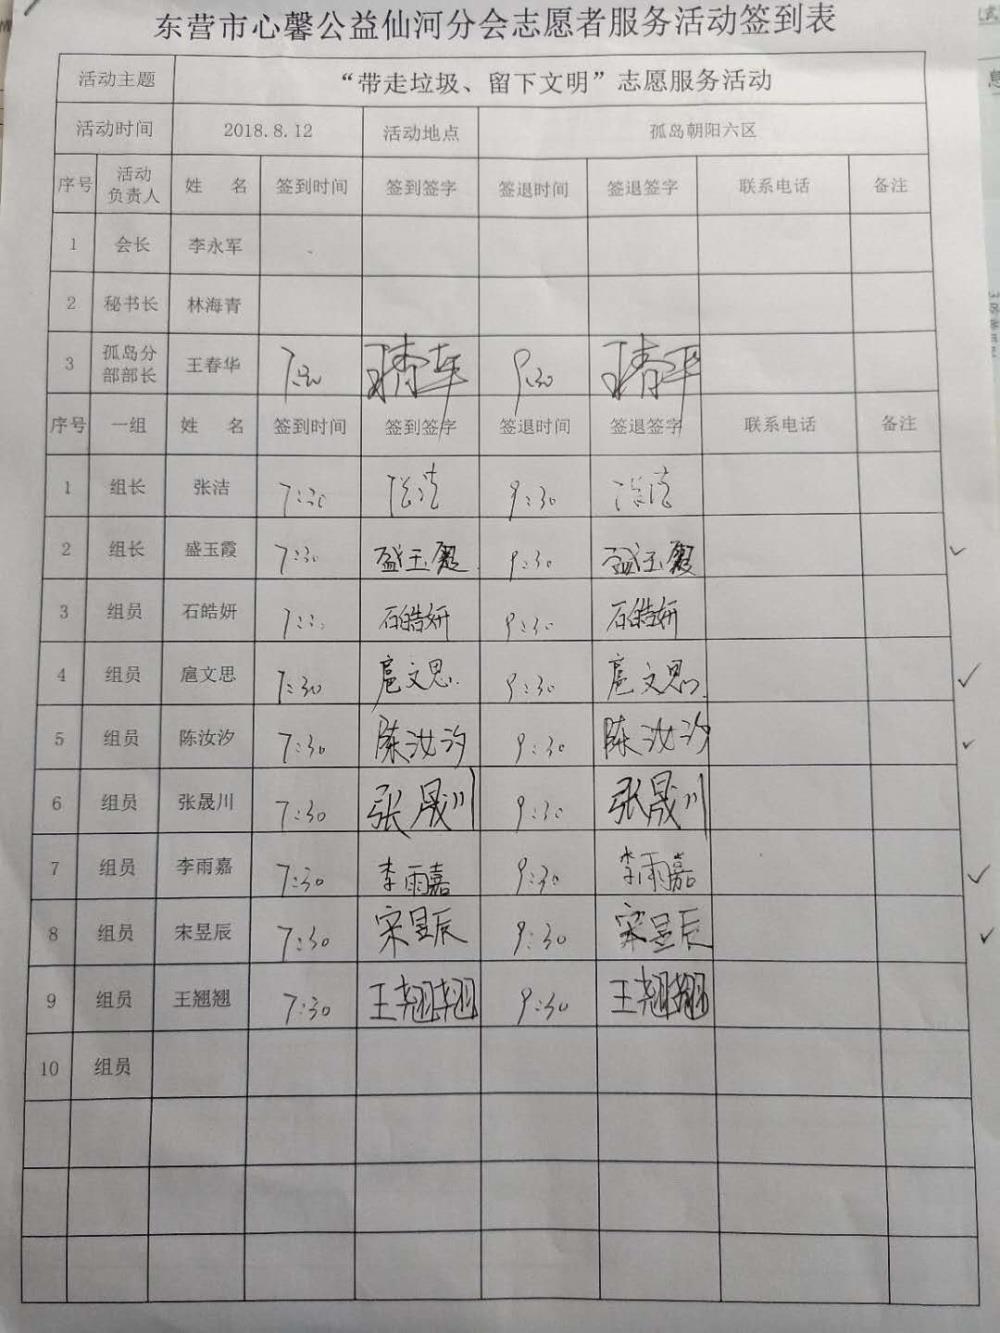 东营市心馨公益仙河分会志愿者服务活动签到表
活动主题 “带走垃圾、留下文明”志愿服务活动
活动时间 2018.8.12 活动地点 孤岛朝阳六区
序号 活动负责人 姓 名 签到时间 签到签字 签退时间 签退签字 联系电话 备注
1 会长 李永军
2 秘书长 林海青
3 孤岛分部部长 王春华 7:30 9:30
序号 一组 姓 名 签到时间 签到签字 签退时间 签退签字 联系电话 备注
1 组长 张洁 7:30 张洁 9:30 张洁
2 组长 盛玉霞 7:30 盛玉霞 9:30 盛玉霞
3 组员 石皓妍 石皓妍 9:30 石皓妍
4 组员 扈文思 7:30 扈文思 9:30 扈文思
5 组员 陈汝汐 7:30 陈汝汐 9:30 陈汝汐
6 组员 张晟川 7:30 张晟川 9:30 张晟川
7 组员 李雨嘉 7:30 李雨嘉 9:30 李雨嘉
8 组员 宋昱辰 7:30 宋昱辰 9:30 宋昱辰
9 组员 王翘翘 7:30 王翘翘 9:30 王翘翘
10 组员